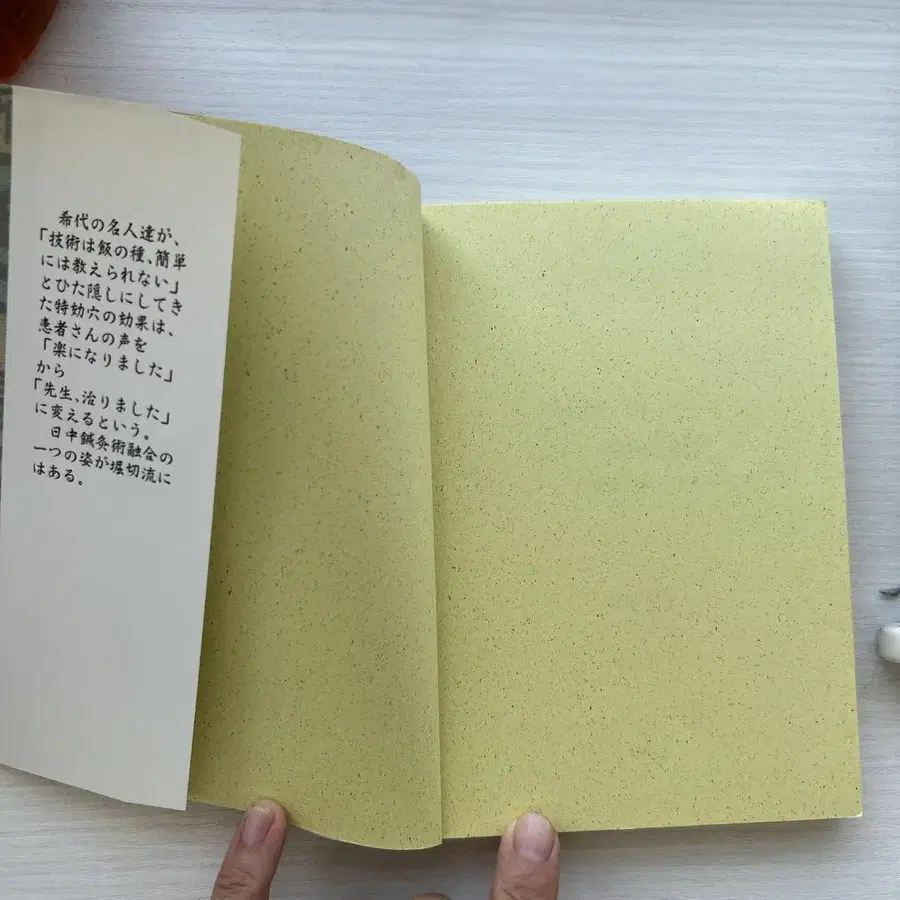 希代の名人達が、
「技術は飯の種、簡単
には教えられない」
とひた隠しにしてき
た特効穴の効果は、
患者さんの声を
「楽になりました」
から
「先生、治りました」
に変えるという。
日中鍼灸術融合の
一つの姿が堀切流に
はある。